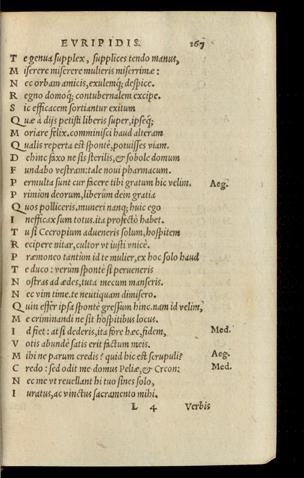 EVRIPIDIS. 167
T e genua supplex, supplices tendo manus,
M iserere miserere mulieris miserrimæ:
N ec orbam amicis, exulemq́; despice.
R egno domoq́; contubernalem excipe.
S ic efficacem sortiantur exitum
Q uæ à dijs petisti liberis super, ipseq́;
M oriare felix. comminisci haud alteram
Q ualis reperta est spontè, potuisses viam.
D ehinc faxo ne sis sterilis, & sobole domum
F undabo vestram: tale noui pharmacum.
P ermulta sunt cur facere tibi gratum hic velim. Aeg.
P rimion deorum, liberûm dein gratia
Q uos polliceris. muneri nanq; huic ego
I nefficax sum totus. ita profectò habet.
T u si Cecropium adueneris solum, hospitem
R ecipere nitar, cultor vt iusti vnicè.
P ræmoneo tantùm id te mulier, ex hoc solo haud
T e duco: verùm spontè si perueneris
N ostras ad ædes, tuta mecum manseris.
N ec vim time. te neutiquam dimisero.
Q uin effer ipsa spontè gressum hinc. nam id velim,
M e criminandi ne sit hospitibus locus.
I d fiet: at si dederis, ita fore hæc, fidem, Med.
V otis abundè satis erit factum meis.
M ihi ne parum credis? quid hic est scrupuli? Aeg.
C redo: sed odit me domus Peliæ, & Creon: Med.
N ec me vt reuellant hi tuo sines solo,
I uratus, ac vinctus sacramento mihi.
L 4 Verbis